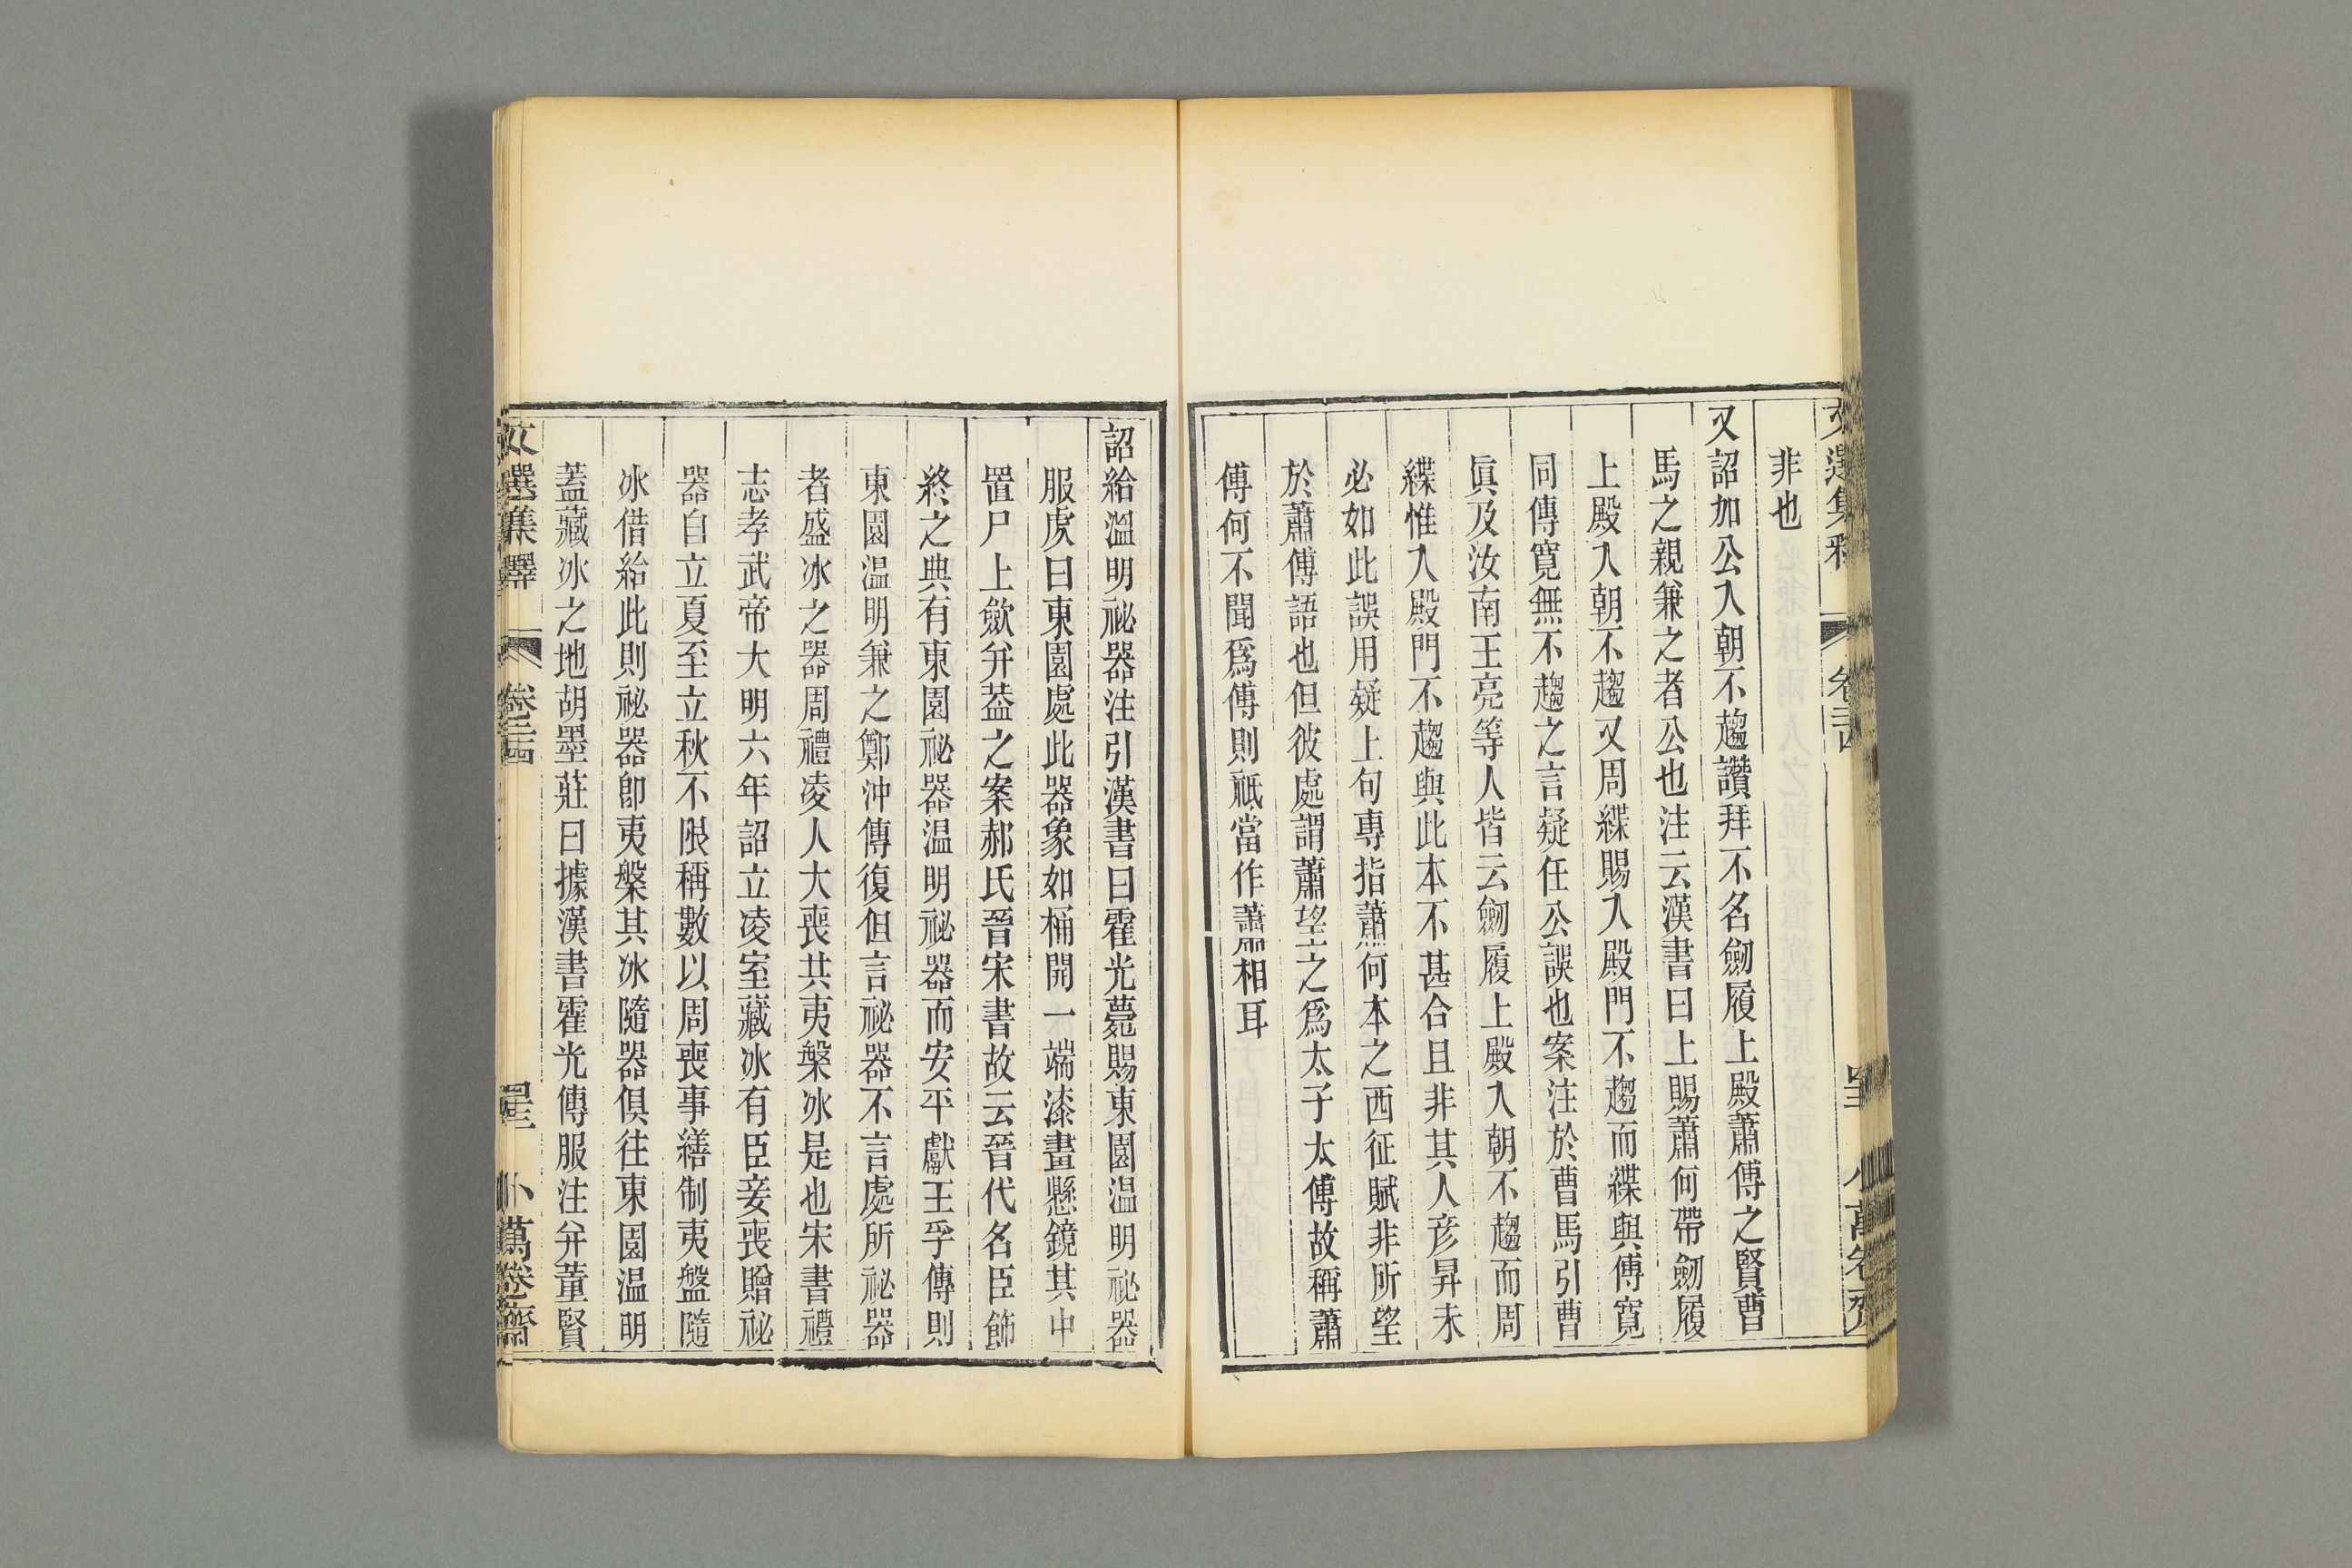 文選集釋 卷二十四 小萬卷齋
非也
又詔加公入朝不趨讚拜不名劒履上殿蕭傅之賢曹
馬之親兼之者公也注云漢書曰上賜蕭何帶劒履
上殿入朝不趨又周緤賜入殿門不趨而緤與傅寬
同傳寬無不趨之言疑任公誤也案注於曹馬引曹
眞及汝南王亮等人皆云劒履上殿入朝不趨而周
緤惟入殿門不趨與此本不甚合且非其人彥昇未
必如此誤用疑上句專指蕭何本之西征賦非所望
於蕭傅語也但彼處謂蕭望之爲太子太傅故稱蕭
傅何不聞爲傅則祇當作蕭相耳
詔給溫明祕器注引漢書曰霍光薨賜東園温明祕器
服虔曰東園處此器象如桶開一端漆畫懸鏡其中
置尸上斂并葢之案郝氏晉宋書故云晉代名臣飾
終之典有東園祕器温明祕器而安平獻王孚傳則
東園温明兼之鄭沖傳復但言祕器不言處所祕器
者盛冰之器周禮凌人大喪共夷槃冰是也宋書禮
志孝武帝大明六年詔立凌室藏冰有臣妾喪贈祕
器自立夏至立秋不限稱數以周喪事繕制夷盤隨
冰借給此則祕器卽夷槃其冰隨器俱往東園温明
蓋藏冰之地胡墨莊曰據漢書霍光傳服注并董賢
文選集釋 卷二十四 小萬卷齋